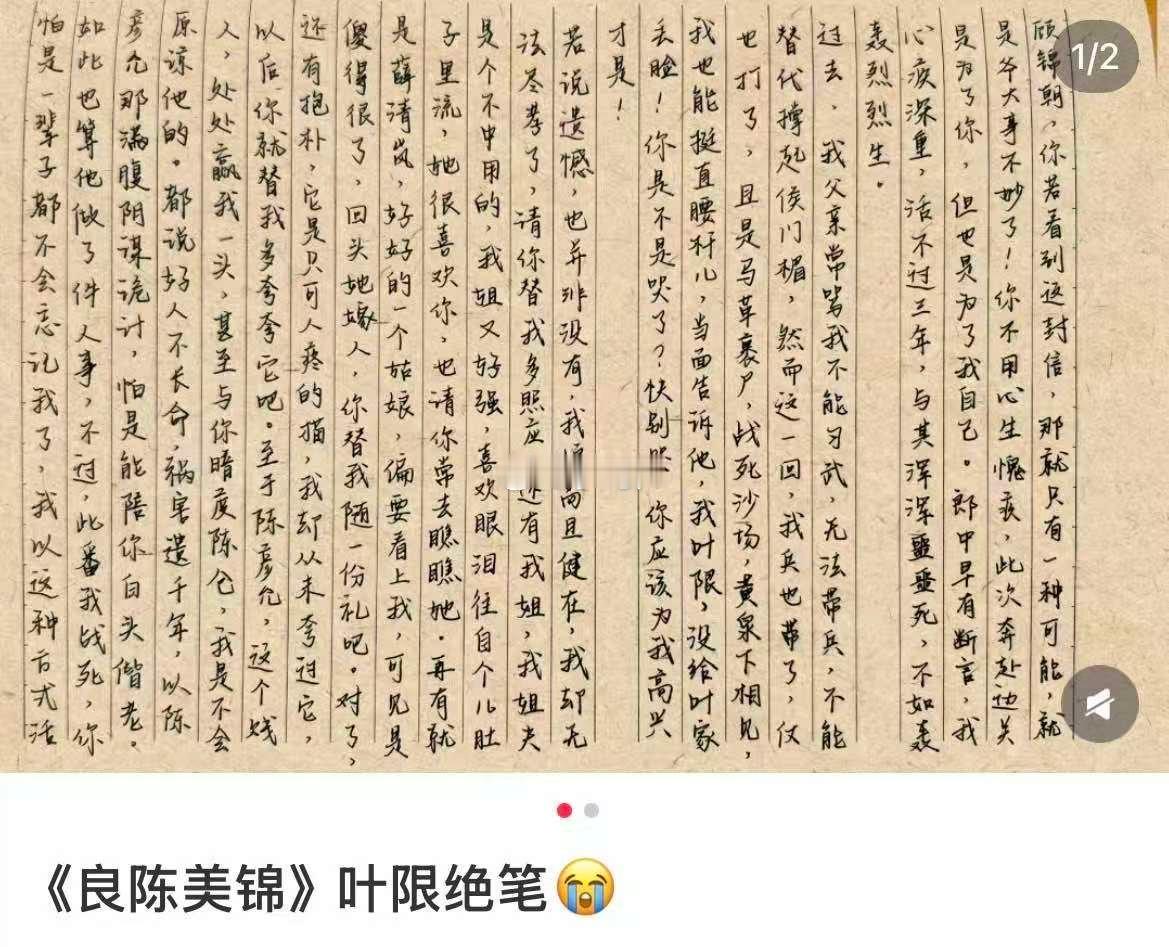 顾锦朝，你若看到这封信，那就只有一种可能，就
是爷大事不妙了！你不用心生愧疚，此次奔赴边关
是为了你，但也是为了我自己。郎中早有断言，我
心疾深重，活不过三年，与其浑浑噩噩死，不如轰
轰烈烈生。
过去，我父亲常骂我不能习武，无法带兵，不能
替代撑起侯门楣，然而这一回，我兵也带了，仗
也打了，且是马革裹尸，战死沙场，黄泉下相见，
我也能挺直腰杆儿，当面告诉他，我叶限，没给叶家
丢脸！你是不是哭了？快别哭 你应该为我高兴
才是！
若说遗憾，也并非没有，我 尚且健在，我却无
法尽孝了，请你替我多照应 还有我姐，我姐夫
是个不中用的，我姐又好强，喜欢眼泪往自个儿肚
子里流，她很喜欢你，也请你常去瞧瞧她。再有就
是薛清岚，好好的一个姑娘，偏要看上我，可见是
傻得很了，回头她嫁人，你替我随一份礼吧。对了，
还有抱朴，它是只可人疼的猫，我却从未夸过它，
以后，你就替我多夸夸它吧。至于陈彦允，这个贱
人，处处赢我一头，甚至与你暗度陈仓，我是不会
原谅他的。都说好人不长命，祸害遗千年，以陈
彦允那满腹阴谋诡计，怕是能陪你白头偕老。
如此也算他做了件人事，不过，此番我战死，你
怕是一辈子都不会忘记我了，我以这种方式活
1/2
《良陈美锦》叶限绝笔😭